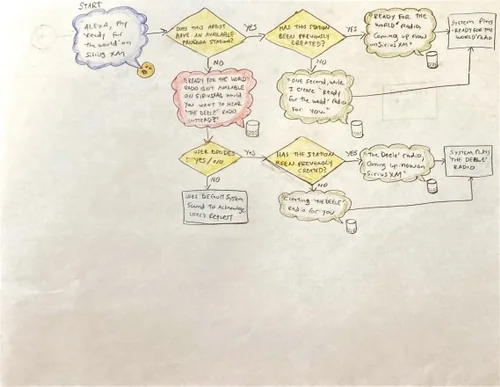 START
ALEXA, Play
"Ready for
the world" on
Sirius XM
DOES THIS ARTIST
HAVE AN AVAILABLE
PANDORA STATION?
YES
HAS THIS STATION
BEEN PREVIOUSLY
CREATED?
YES
"READY FOR THE
WORLD" Radio
Coming up now
on Sirius XM
System Plays
"READY FOR THE
WORLD" RADIO
NO
NO
"READY FOR THE WORLD
RADIO ISN'T AVAILABLE
ON SIRIUSXM. Would
YOU WANT TO HEAR
"THE DEELE" RADIO
INSTEAD?"
"One second, while
I create "Ready
for the world" Radio
For You"
USER DECIDES
YES/NO
YES
HAS THE STATION
BEEN PREVIOUSLY
CREATED?
YES
"The Deele" radio,
Coming up now on
Sirius XM"
SYSTEM PLAYS
"THE DEELE"
RADIO
NO
NO
Uses Default System
Sound to Acknowledge
User's Request
"Creating "THE DEELE"
Radio for you